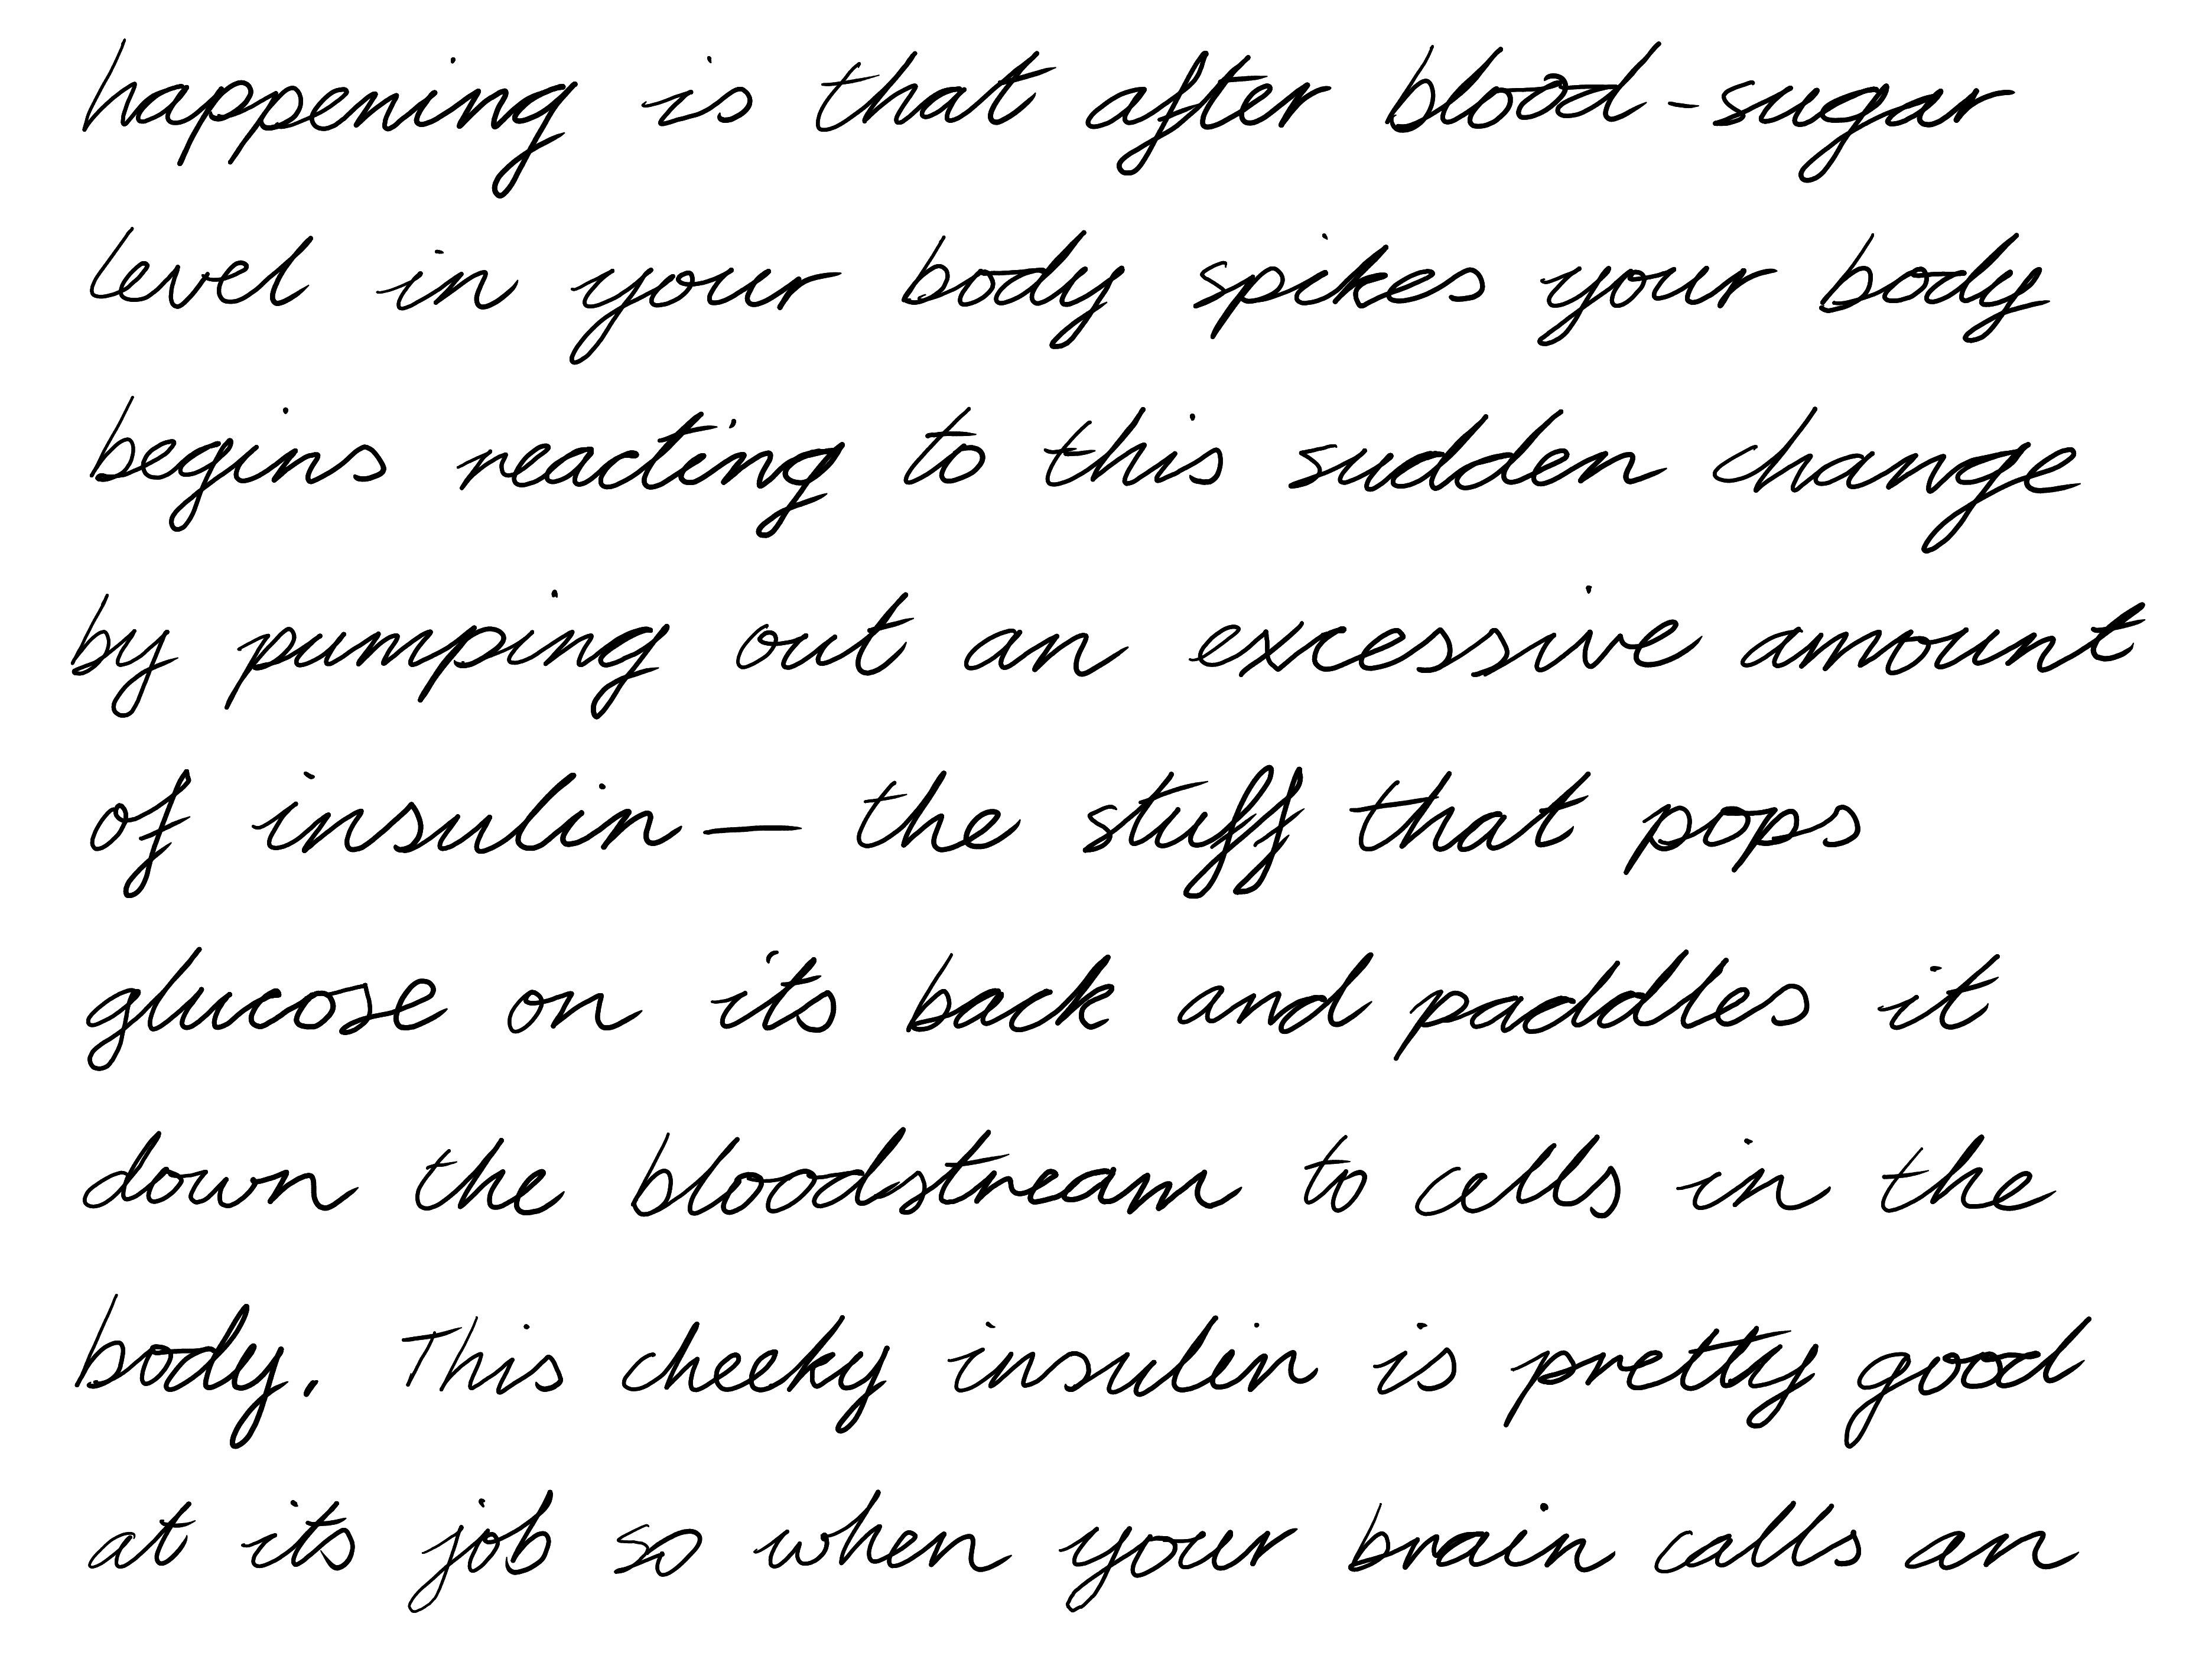 happening is that after blood-sugar
level in your body spikes your body
begins reacting to this sudden change
by pumping out an excessive amount
of insulin — the stuff that pops
glucose on its back and paddles it
down the bloodstream to cells in the
body. This cheeky insulin is pretty good
at its job so when your brain calls an